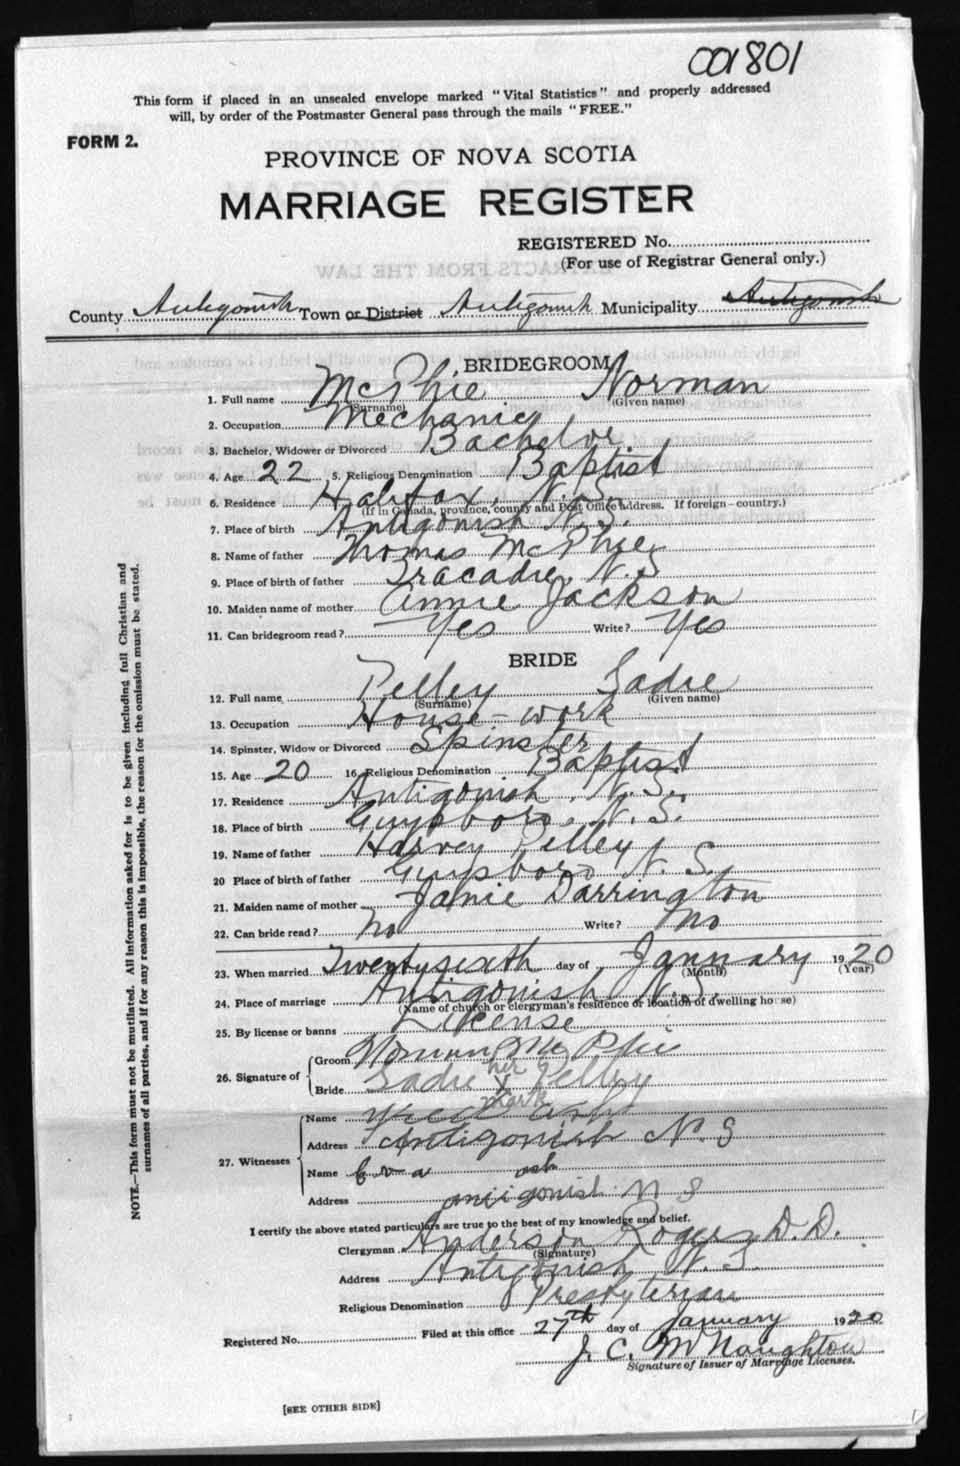 001801
This form if placed in an unsealed envelope marked "Vital Statistics" and properly addressed
will, by order of the Postmaster General pass through the mails "FREE."
FORM 2.
PROVINCE OF NOVA SCOTIA
MARRIAGE REGISTER
REGISTERED No.
(For use of Registrar General only.)
County Antigonish Town or District Antigonish Municipality Antigonish
BRIDEGROOM
1. Full name McPhie Norman
(Surname) (Given name)
2. Occupation Mechanic
3. Bachelor, Widower or Divorced Bachelor
4. Age 22 5. Religious Denomination Baptist
6. Residence Halifax, N.S.
(If in Canada, province, county and Post Office address. If foreign—country.)
7. Place of birth Antigonish N.S.
8. Name of father Thomas McPhie
9. Place of birth of father Tracadie, N.S
10. Maiden name of mother Annie Jackson
11. Can bridegroom read? Yes Write? Yes
BRIDE
12. Full name Pelley Sadie
(Surname) (Given name)
13. Occupation House-work
14. Spinster, Widow or Divorced Spinster
15. Age 20 16. Religious Denomination Baptist
17. Residence Antigonish, N.S.
18. Place of birth Guysboro, N.S.
19. Name of father Harvey Pelley
20 Place of birth of father Guysboro N.S.
21. Maiden name of mother Janie Darrington
22. Can bride read? No Write? No
23. When married Twentysixth day of January 1920
(Month) (Year)
24. Place of marriage Antigonish N.S.
(Name of church or clergyman's residence or location of dwelling house)
25. By license or banns License
26. Signature of Groom Norman McPhie
Bride Sadie her X mark Pelley
27. Witnesses
Name
Address Antigonish N.S
Name Eva ash
Address antigonish N S
I certify the above stated particulars are true to the best of my knowledge and belief.
Clergyman Anderson Rogers D.D.
(Signature)
Address Antigonish N.S.
Religious Denomination Presbyterian
Registered No. Filed at this office 27th day of January 1920
J. C. McNaughton
Signature of Issuer of Marriage Licenses.
[SEE OTHER SIDE]
NOTE.—This form must not be mutilated. All information asked for is to be given including full Christian and
surnames of all parties, and if for any reason this is impossible, the reason for the omission must be stated.